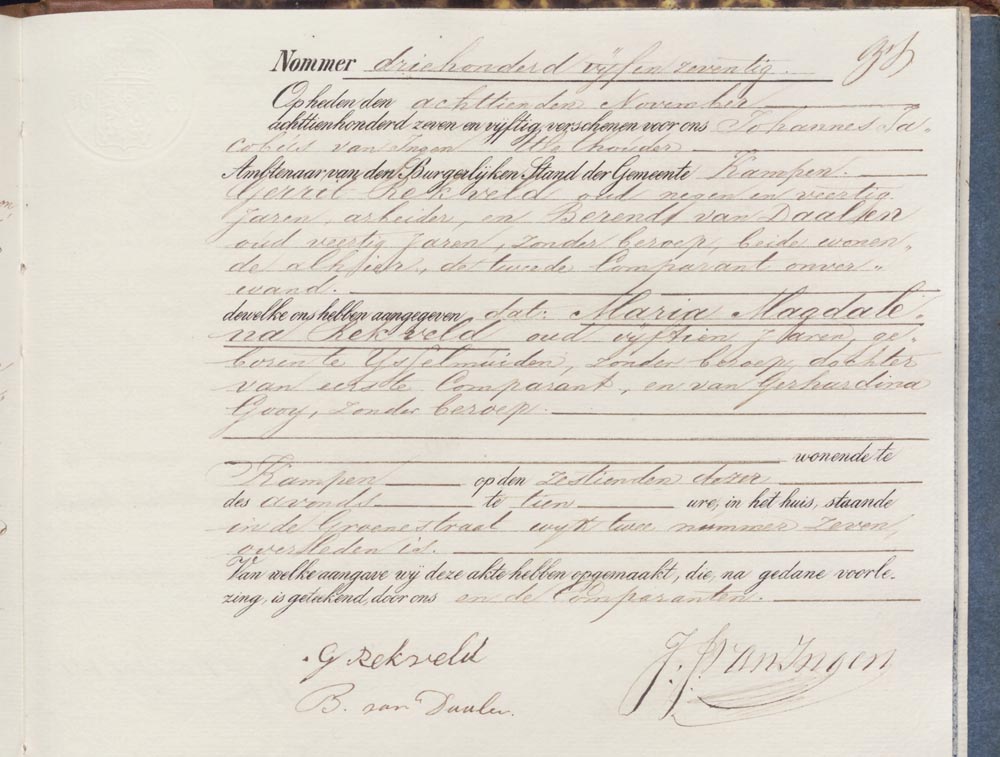 Nommer driehonderd vijf en zeventig.
Op heden den achttienden November
achttienhonderd zeven en vijftig, verschenen voor ons Johannes Ja„
cobus van Ingen Wethouder
Ambtenaar van den Burgerlijken Stand der Gemeente Kampen.
Gerrit Rekveld oud negen en veertig
Jaren, arbeider, en Berend van Daalen
oud veertig Jaren, zonder beroep, beide wonen„
de alhier, de tweede Comparant onver„
wand.
dewelke ons hebben aangegeven, dat: Maria Magdale„
na Rekveld oud vijftien Jaren, ge„
boren te Ysselmuiden, zonder beroep, dochter
van eerste Comparant, en van Gerhardina
Gooy, zonder beroep.
wonende te
Kampen op den zestienden dezer
des avonds te tien ure, in het huis, staande
in de Groenestraat wijk twee nummer zeven,
overleden is.
Van welke aangave wij deze akte hebben opgemaakt, die, na gedane voorle-
zing, is geteekend, door ons en de Comparanten.
G Rekveld
J. J. van Ingen
B. van Daalen.